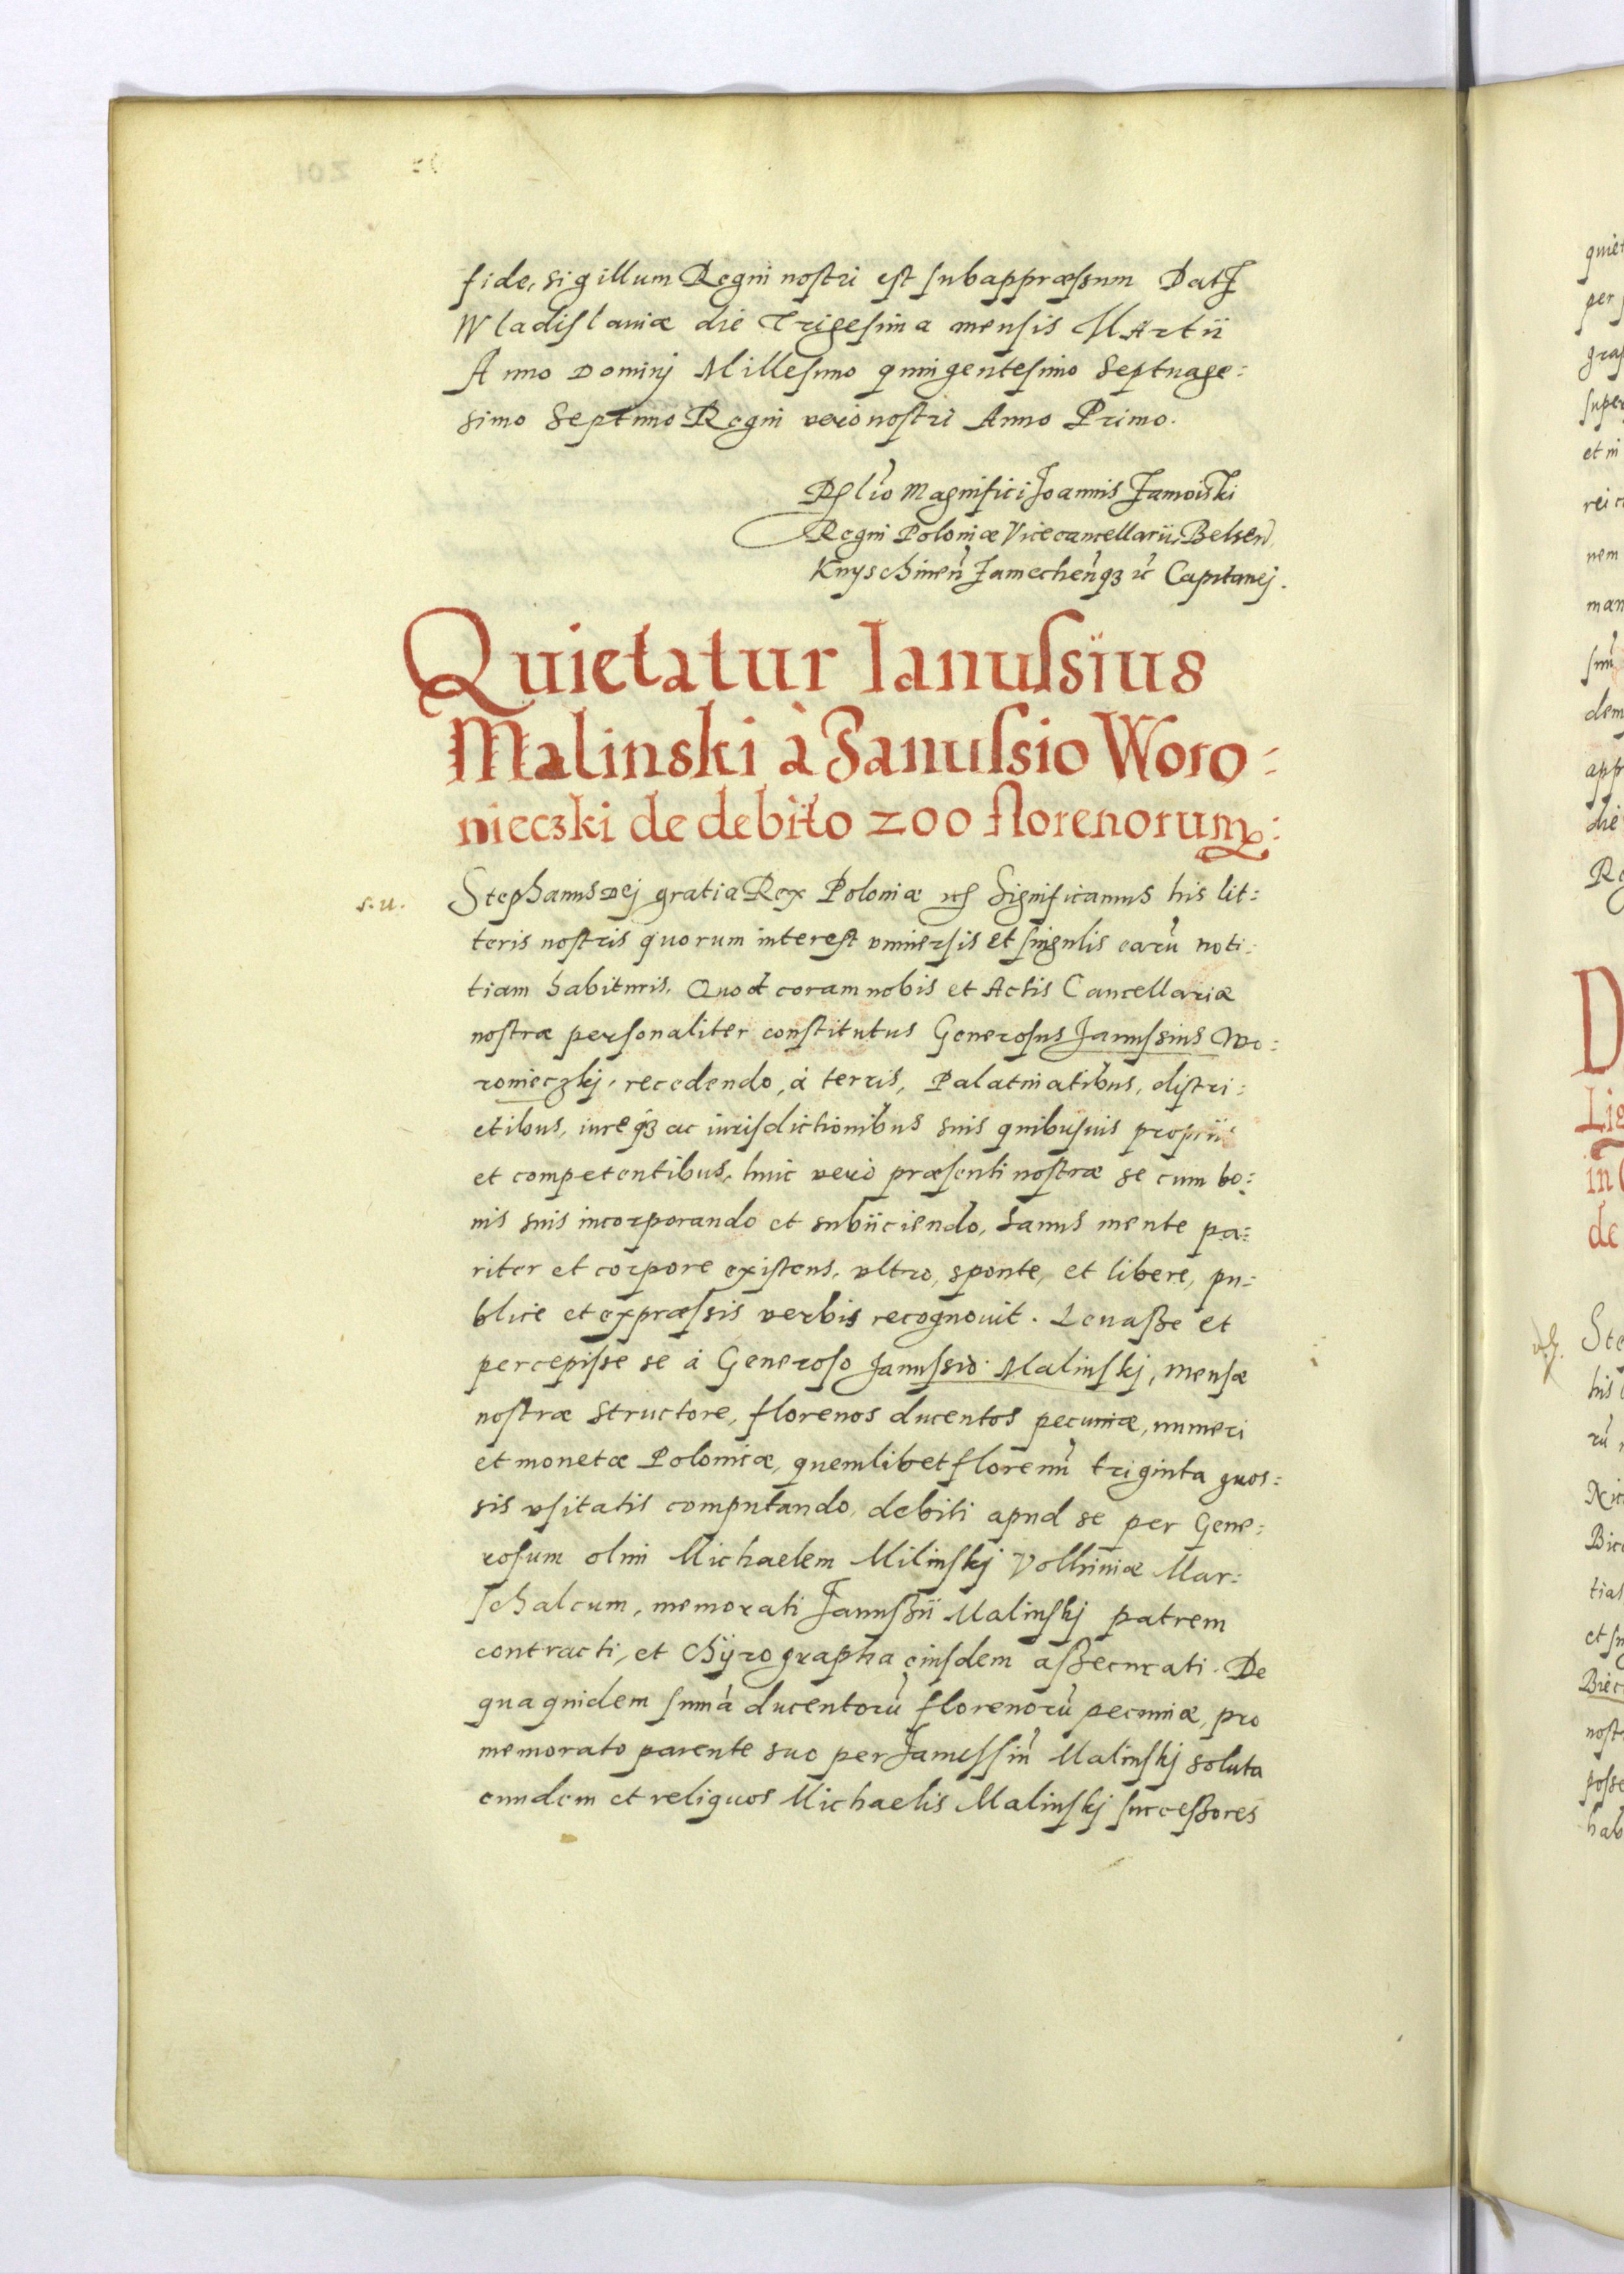 fide, sigillum Regni nostri est subappræssum Datt
Wladislauiæ die Trigesima mensis Martii
Anno Dominj Millesimo quingentesimo Septuage:
simo Septimo Regni vero nostri Anno Primo.
Magnifici Joannis Zamoiski
Regni Poloniæ Vicecancellarii, Belsen̄
Knyschinen̄ Zamechen̄qȝ Capitanej.
Quietatur Ianussius
Malinski à Ianussio Woro:
nieczki de debito 200 florenorum:
s.u.
Stephanus Dej gratia Rex Poloniæ Significamus his lit:
teris nostris quorum interest vniuersis et singulis earū noti:
tiam habituris. Quod coram nobis et Actis Cancellariæ
nostræ personaliter constitutus Generosus Janussius Wo:
ronieczkj, recedendo, à terris, Palatinatibus, distri:
ctibus, iureqȝ ac iurisdictionibus suis quibusuis propriis
et competentibus, huic vero præsenti nostræ se cum bo:
nis suis incorporando et subiiciendo, sanus mente pa:
riter et corpore existens, vltro, sponte, et libere, pu:
blice et expræssis verbis recognouit. Leuasse et
percepisse se à Generoso Janussio Malinskj, mensæ
nostræ Structore, florenos ducentos pecuniæ, numeri
et monetæ Polonicæ, quemlibet florenū triginta gros:
sis vsitatis computando, debiti apud se per Gene:
rosum olim Michaelem Milinskj Volhiniæ Mar:
schalcum, memorati Janussii Malinskj patrem
contracti, et chÿrographa eiusdem assecurati. De
qua quidem sum̄a ducentorū florenorū pecuniæ, pro
memorato parente suo per Janussiū Malinskj soluta
eundem et reliquos Michaelis Malinskj successores